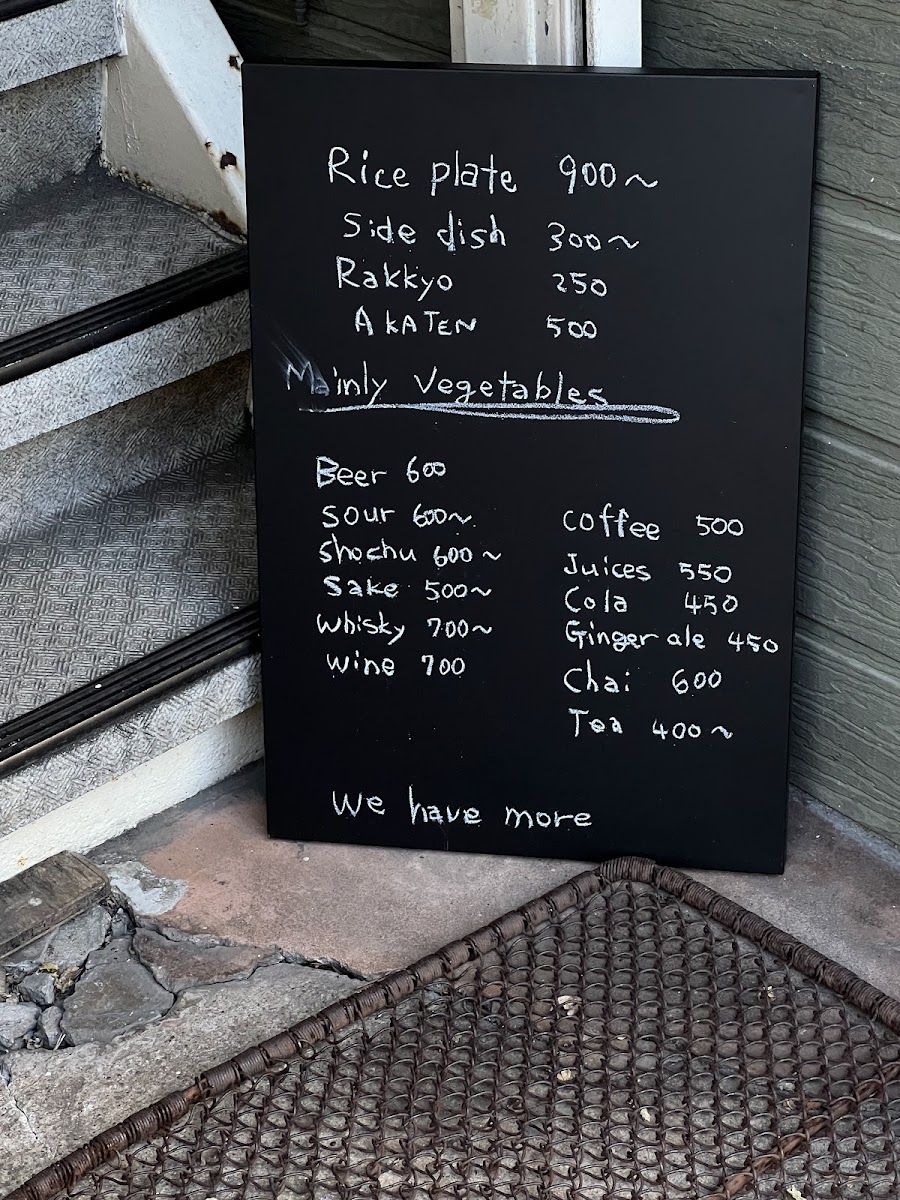 Rice plate 900~
Side dish 300~
Rakkyo 250
AKATEN 500
Mainly Vegetables
Beer 600
Sour 600~
Shochu 600~
Sake 500~
Whisky 700~
Wine 700
Coffee 500
Juices 550
Cola 450
Ginger ale 450
Chai 600
Tea 400~
We have more